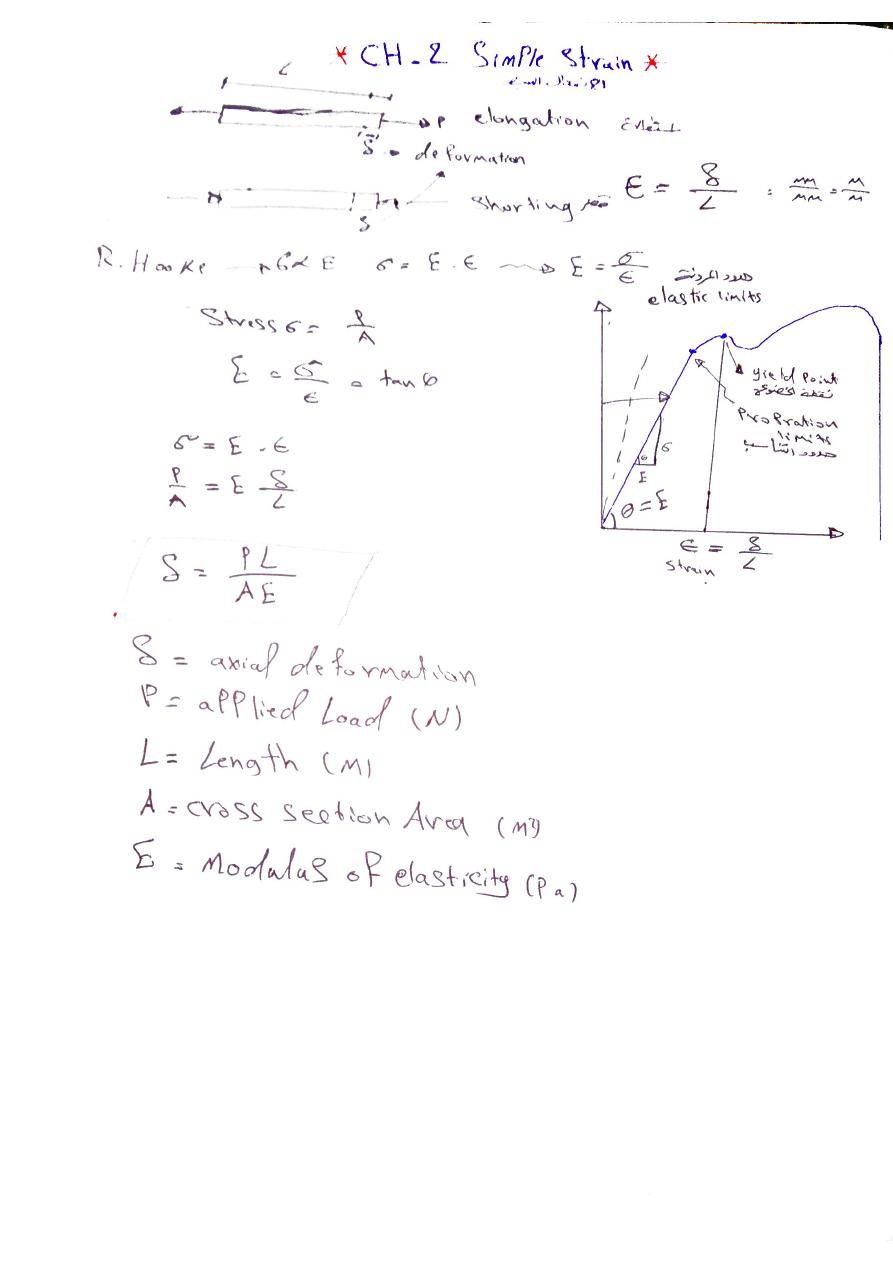 * CH-2 Simple Strain *
L
P elongation استطالة
δ = deformation
Shorting تقصر
δ
ϵ = δ/L = mm/mm = m/m
R. Hooke σ∝ϵ σ = E.ϵ → E = σ/ϵ
حدود المرونة
elastic limits
Stress σ = P/A
E = σ/ϵ = tan θ
yield Point
نقطة الخضوع
Propration
limits
حدود التناسب
σ
E
θ = E
σ = E.ϵ
P/A = E δ/L
ϵ = δ/L
strain
δ = PL/AE
δ = axial deformation
P = applied Load (N)
L = Length (M)
A = cross section Area (m²)
E = Modulus of elasticity (Pa)